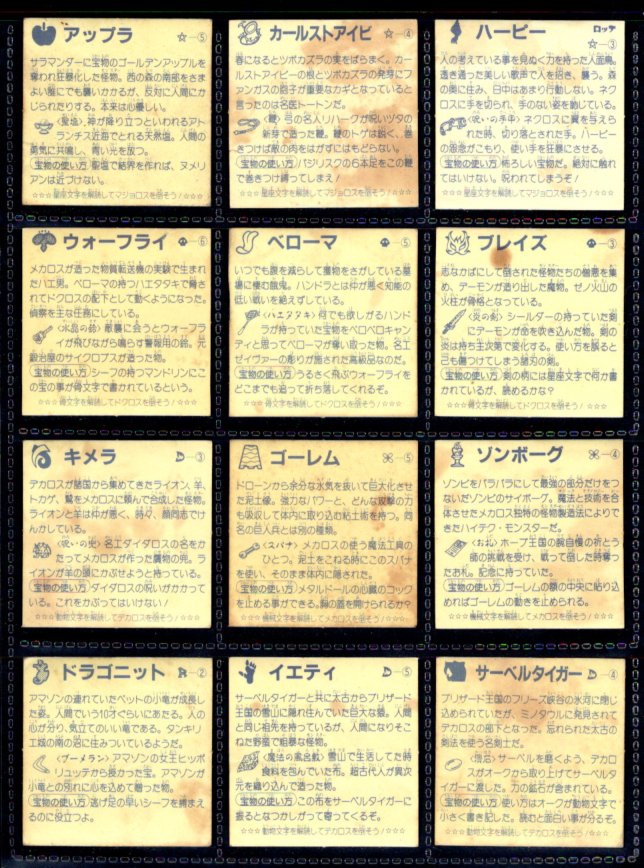 アップラ ☆—⑤
サラマンダーに宝物のゴールデンアップルを
奪われ狂暴化した怪物。西の森の南部をさま
よい誰にでも襲いかかるが、反対に人間にか
じられたりする。本来は心優しい。
〈聖塩〉神が降り立つといわれるアト
ランチス近海でとれる天然塩。人間の
勇気に共鳴し、青い光を放つ。
宝物の使い方 聖塩で結界を作れば、ヌメリ
アンは近づけない。
☆☆☆星座文字を解読してマジョロスを倒そう!☆☆☆
カールストアイビ ☆—④
春になるとツボカズラの実をばらまく。カー
ルストアイビーの根とツボカズラの発芽にフ
ァンガスの胞子が重要なカギとなっていると
言ったのは名医トートンだ。
〈鞭〉弓の名人リハークが呪いツタの
新芽で造った鞭。鞭のトゲは鋭く、巻
きつけば敵の肉をはがすにはもどらない。
宝物の使い方 バジリスクの6本足をこの鞭
で巻きつけ縛ってしまえ!
☆☆☆星座文字を解読してマジョロスを倒そう!☆☆☆
ハーピー ロッテ
☆—③
人の考えている事を見ぬく力を持つ人面鳥。
透き通った美しい歌声で人を招き、襲う。森
の奥に住み、日中はあまり行動しない。ネク
ロスに手を切られ、手のない姿を恥じている。
〈呪いの手甲〉ネクロスに翼を与えら
れた時、切り落とされた手。ハーピー
の怨念がこもり、使い手を狂暴にさせる。
宝物の使い方 怖ろしい宝物だ。絶対に触れ
てはいけない。呪われてしまうぞ!
☆☆☆星座文字を解読してマジョロスを倒そう!☆☆☆
ウォーフライ —⑥
メカロスが造った物質転送機の実験で生まれ
たハエ男。ベローマの持つハエタタキで脅さ
れてドクロスの配下として動くようになった。
偵察を主な任務にしている。
〈水晶の鈴〉敵襲に会うとウォーフラ
イが飛びながら鳴らす警報用の鈴。元
鍛冶屋のサイクロプスが造った物。
宝物の使い方 シーフの持つマンドリンにこ
の宝の事が骨文字で書かれているという。
☆☆☆骨文字を解読してドクロスを倒そう!☆☆☆
ベローマ —⑤
いつでも腹を減らして獲物をさがしている墓
場に棲む餓鬼。ハンドラとは仲が悪く知能の
低い戦いを絶えずしている。
〈ハエタタキ〉何でも欲しがるハンド
ラが持っていた宝物をベロベロキャンデ
ィと思ってベローマが奪い取った物。名工
ゼイヴァーの彫りが施された高級品なのだ。
宝物の使い方 うるさく飛ぶウォーフライを
どこまでも追って折ち落してくれるぞ。
☆☆☆骨文字を解読してドクロスを倒そう!☆☆☆
ブレイズ —③
志なかばにして倒された怪物たちの憎悪を集
め、デーモンが造り出した魔物。ゼノ火山の
火柱が骨格となっている。
〈炎の剣〉シールダーの持っていた剣
にデーモンが命を吹き込んだ物。剣の
炎は持ち主次第で変化する。使い方を誤ると
己も傷つけてしまう諸刃の剣。
宝物の使い方 剣の柄には星座文字で何か書
かれているが、読めるかな?
☆☆☆骨文字を解読してドクロスを倒そう!☆☆☆
キメラ —③
デカロスが諸国から集めてきたライオン、羊、
トカゲ、鷲をメカロスに頼んで合成した怪物。
ライオンと羊は仲が悪く、時々、顔同志でけ
んかしている。
〈呪いの兜〉名工ダイダロスの名をか
たってメカロスが作った贋物の兜。ラ
イオンが羊の頭にかぶせようと持っている。
宝物の使い方 ダイダロスの呪いがかかって
いる。これをかぶってはいけない!
☆☆☆動物文字を解読してデカロスを倒そう!☆☆☆
ゴーレム —⑤
ドローンから余分な水気を抜いて巨大化させ
た泥土像。強力なパワーと、どんな攻撃の力
も吸収して体内に取り込む粘土術を持つ。同
名の巨人兵とは別の種類。
〈スパナ〉メカロスの使う魔法工具の
ひとつ。泥土をこねる時にこのスパナ
を使い、そのまま体内に隠された。
宝物の使い方 メタルドールの心臓のコック
を止める事ができる。胸の蓋を開けられるか?
☆☆☆機械文字を解読してメカロスを倒そう!☆☆☆
ゾンボーグ —④
ゾンビをバラバラにして最強の部分だけをつ
ないだゾンビのサイボーグ。魔法と技術を合
体させたメカロス独特の怪物製造法によりで
きたハイテク・モンスターだ。
〈お札〉ホープ王国の腕自慢の祈とう
師の挑戦を受け、戦って倒した時奪っ
たお札。記念に持っていた。
宝物の使い方 ゴーレムの額の中央に貼り込
めればゴーレムの動きを止められる。
☆☆☆機械文字を解読してメカロスを倒そう!☆☆☆
ドラゴニット —②
アマゾンの連れていたペットの小竜が成長し
た姿。人間でいう10才ぐらいにあたる。人の
心が分り、気立てのいい竜である。タンキリ
工城の南の沼に住みついているようだ。
〈ブーメラン〉アマゾンの女王ヒッポ
リュッテから長かった宝。アマゾンが
小竜との別れに心を込めて贈った物。
宝物の使い方 逃げ足の早いシーフを捕まえ
るのに役立つよ。
イエティ —⑤
サーベルタイガーと共に太古からブリザード
王国の雪山に隠れ住んでいた巨大な猿。人間
と同じ祖先を持っているが、人間になりそこ
ねた野蛮で粗暴な怪物。
〈魔法の風呂敷〉雪山で生活してた時
食料を包んでいた布。超古代人が異次
元を織り込んで造った物。
宝物の使い方 この布をサーベルタイガーに
振るとなつかしがって寄ってくるぞ。
☆☆☆動物文字を解読してデカロスを倒そう!☆☆☆
サーベルタイガー —④
ブリザード王国のフリーズ峡谷の氷河に閉じ
込められていたが、ミノタウルに発見されて
デカロスの部下となった。忘れられた太古の
剣法を使う名剣士だ。
〈砥石〉サーベルを磨くよう、デカロ
スがオークから取り上げてサーベルタ
イガーに渡した。力の鉱石が含まれている。
宝物の使い方 使い方はオークが動物文字で
小さく書き記した。読むと面白い事が分るぞ。
☆☆☆動物文字を解読してデカロスを倒そう!☆☆☆